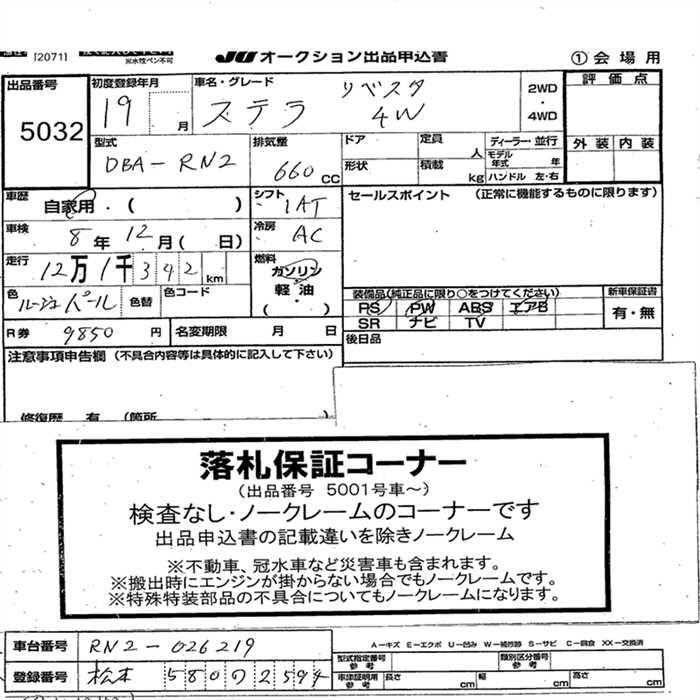 (20711
JU オークション出品申込書
①会場用
出品番号 初度登録年月 車名・グレード 評価点
5032 19 月 ステラ リベスタ 4W 2WD・4WD
型式 排気量 ドア 定員 人 ディーラー・並行 外装 内装
DBA-RN2 660cc 形状 積載 kg モデル年式 年
ハンドル 左・右
車歴 自家用・( ) シフト IAT セールスポイント (正常に機能するものに限ります)
車検 8年12月( 日) 冷房 AC
走行 12万1千342km 燃料 ガソリン
軽油
( ・ )
色 ルージュパール 色替 色コード 装備品(純正品に限り○をつけてください) 新車保証書
PS PW ABS エアB 有・無
SR ナビ TV
R券 9850円 名変期限 月 日 後日品
注意事項申告欄 (不具合内容等は具体的に記入して下さい)
修復歴 有 (箇所 )
落札保証コーナー
(出品番号 5001号車~)
検査なし・ノークレームのコーナーです
出品申込書の記載違いを除きノークレーム
※不動車、冠水車など災害車も含まれます。
※搬出時にエンジンが掛からない場合でもノークレームです。
※特殊特装部品の不具合についてもノークレームになります。
車台番号 RN2-026219
A-キズ E-エクボ U-凹み W-補修跡 S-サビ C-腐食 XX-交換済
型式指定番号 参考 類別区分番号 参考
登録番号 松本 580 の 2594
車庫証明用 参考 長さ cm 幅 cm 高さ cm